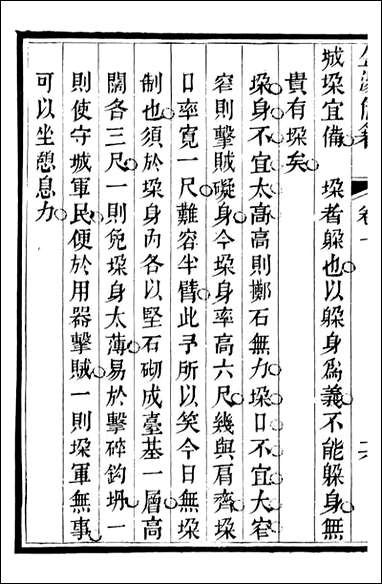 城垜宜備　垜者躱也以躱身爲義不能躱身無
貴有垜矣
垜身不宜太高高則擲石無力垜口不宜大窄
窄則擊賊礙身今垜身率高六尺幾與肩齊垜
口率寬一尺難容半臂此予所以笑今日無垜
制也須於垜身內各以堅石砌成臺基一層高
闊各三尺一則免垜身太薄易於擊碎鈎坍一
則使守城軍民便於用器擊賊一則垜軍無事
可以坐憩息力